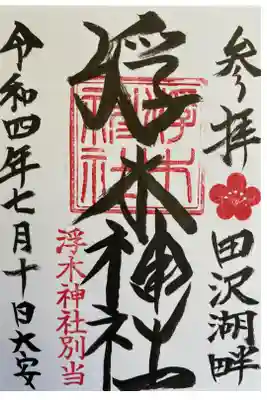 参拝
田沢湖畔
浮木神社
浮木神社
令和四年七月十日大安
浮木神社別当